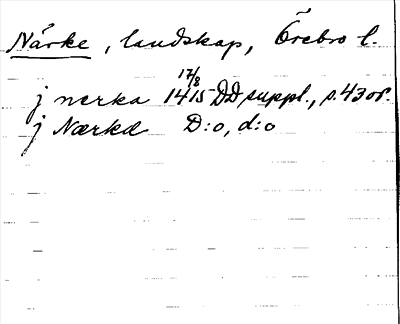 Närke, landskap, Örebro l.
17/8
j nerka 1415 DD suppl., s. 43 or.
j Nærkæ D:o, d:o